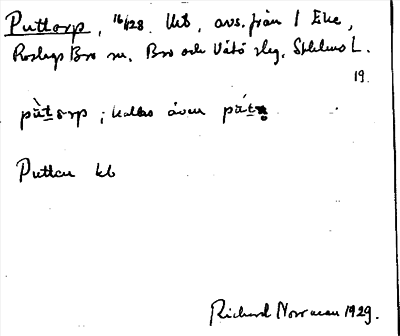 Puttorp, 16/128. Utb, avs. från 1 Eke,
Roslags Bro sn, Bro och Vätö slg, Sthlms L.
19.
pùtorp ; kallas även
Puttan kb
Richard Norrman 1929.